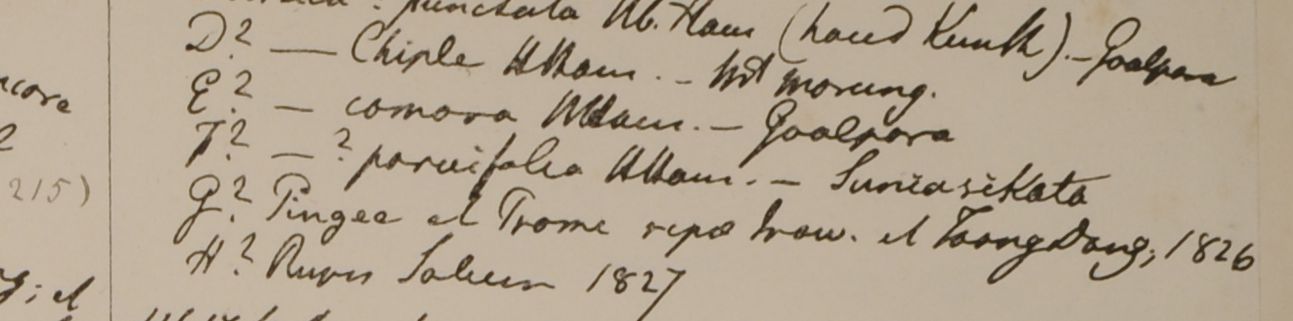 punctata Hb. Ham (haud Kunth). - Goalpara
D? — Chiple HHam. - Hort morung.
E? — comosa HHam. - Goalpara
F? — ? parvifolia HHam. - Suniasikata
ncora
2
215)
G? Pingee et Prome ripæ Iraw. et Toong Dong, 1826
H? Rupes Saluen 1827
; et